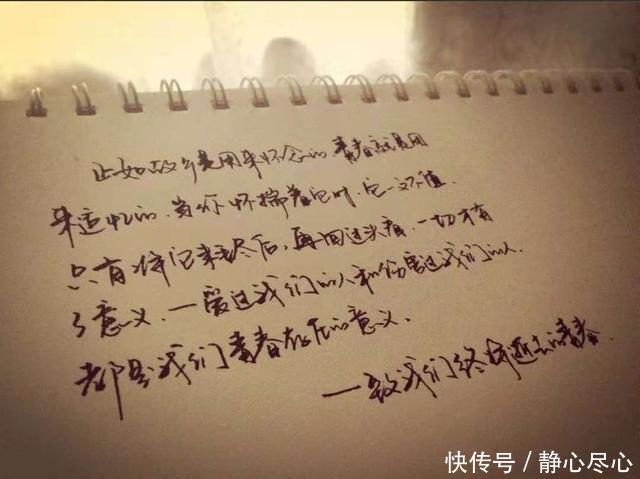 正如故乡是用来怀念的,青春就是用
来追忆的,当你怀揣着它时,它一文不值.
只有将它耗尽后,再回过头看,一切才有
了意义.—爱过我们的人和伤害过我们的人
都是我们青春存在的意义.
—致我们终将逝去的青春.
快传号 / 静心尽心